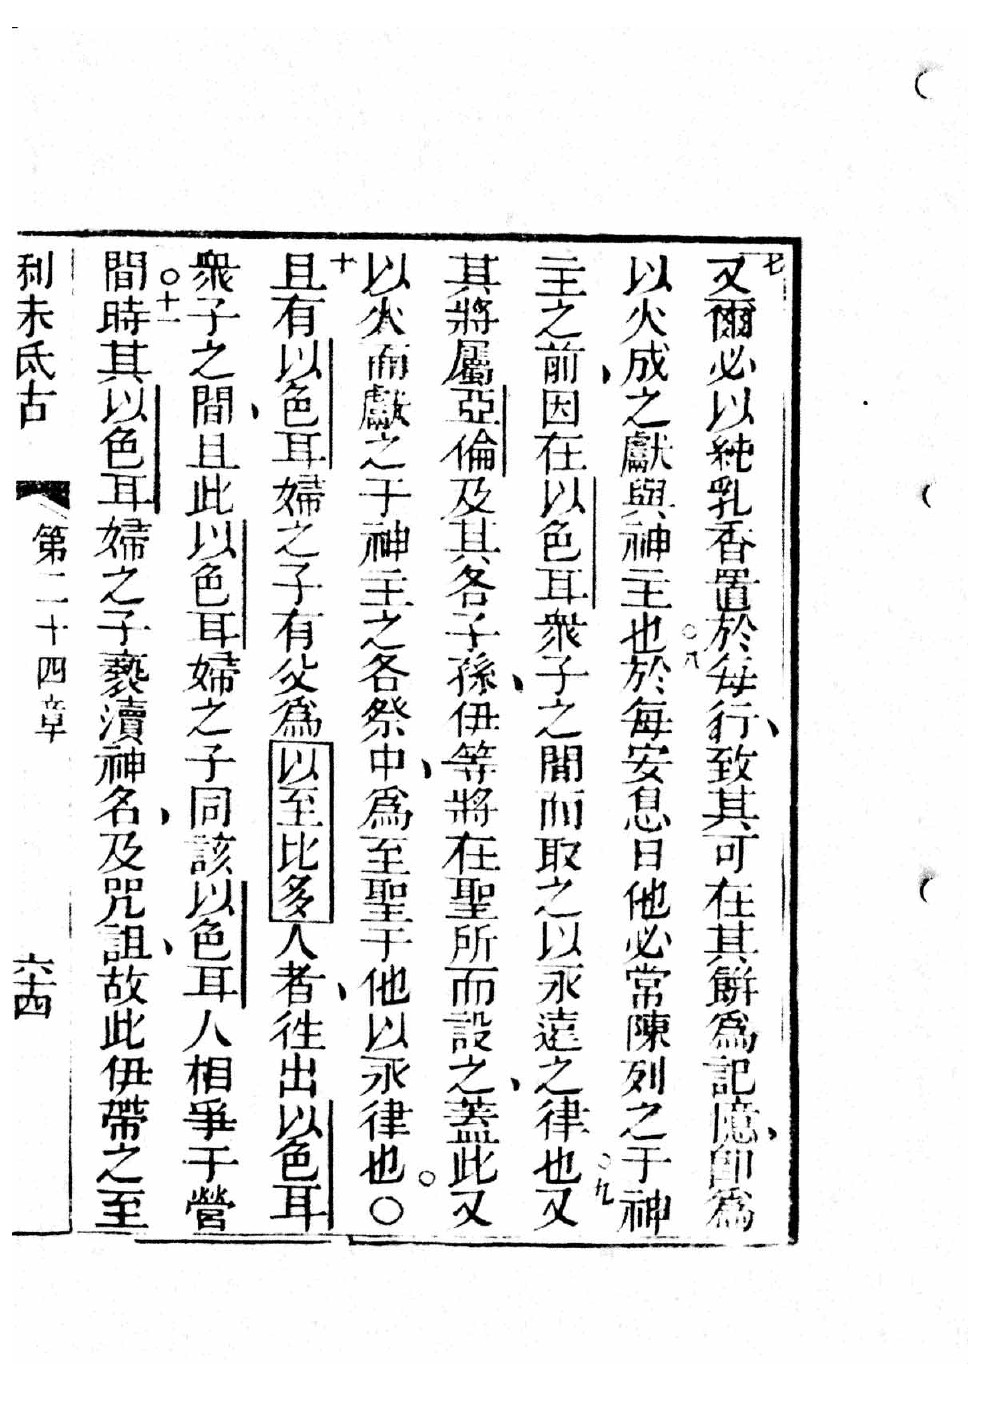 七又爾必以純乳香置於每行、致其可在其餅爲記憶、卽爲
以火成之獻與神主也○八於每安息日他必常陳列之于神
主之前、因在以色耳衆子之間而取之以永遠之律也○九又
其將屬亞倫及其各子孫、伊等將在聖所而設之、蓋此又
以火而獻之于神主之各祭中、爲至聖于他以永律也。○
十且有以色耳婦之子有父爲以至比多人者、徃出以色耳
衆子之間、且此以色耳婦之子同該以色耳人相爭于營
○十一間時其以色耳婦之子褻瀆神名、及咒詛、故此伊帶之至
利未氐古
第二十四章
六十四